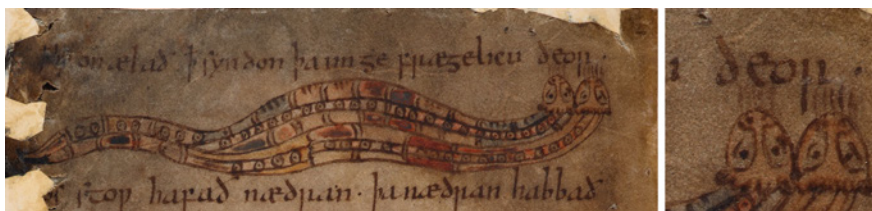 onælað ꝥ syndon þa un ge frægelicu deor ·
stoƿ hafað nædran · þa nædran habbað
deor ·